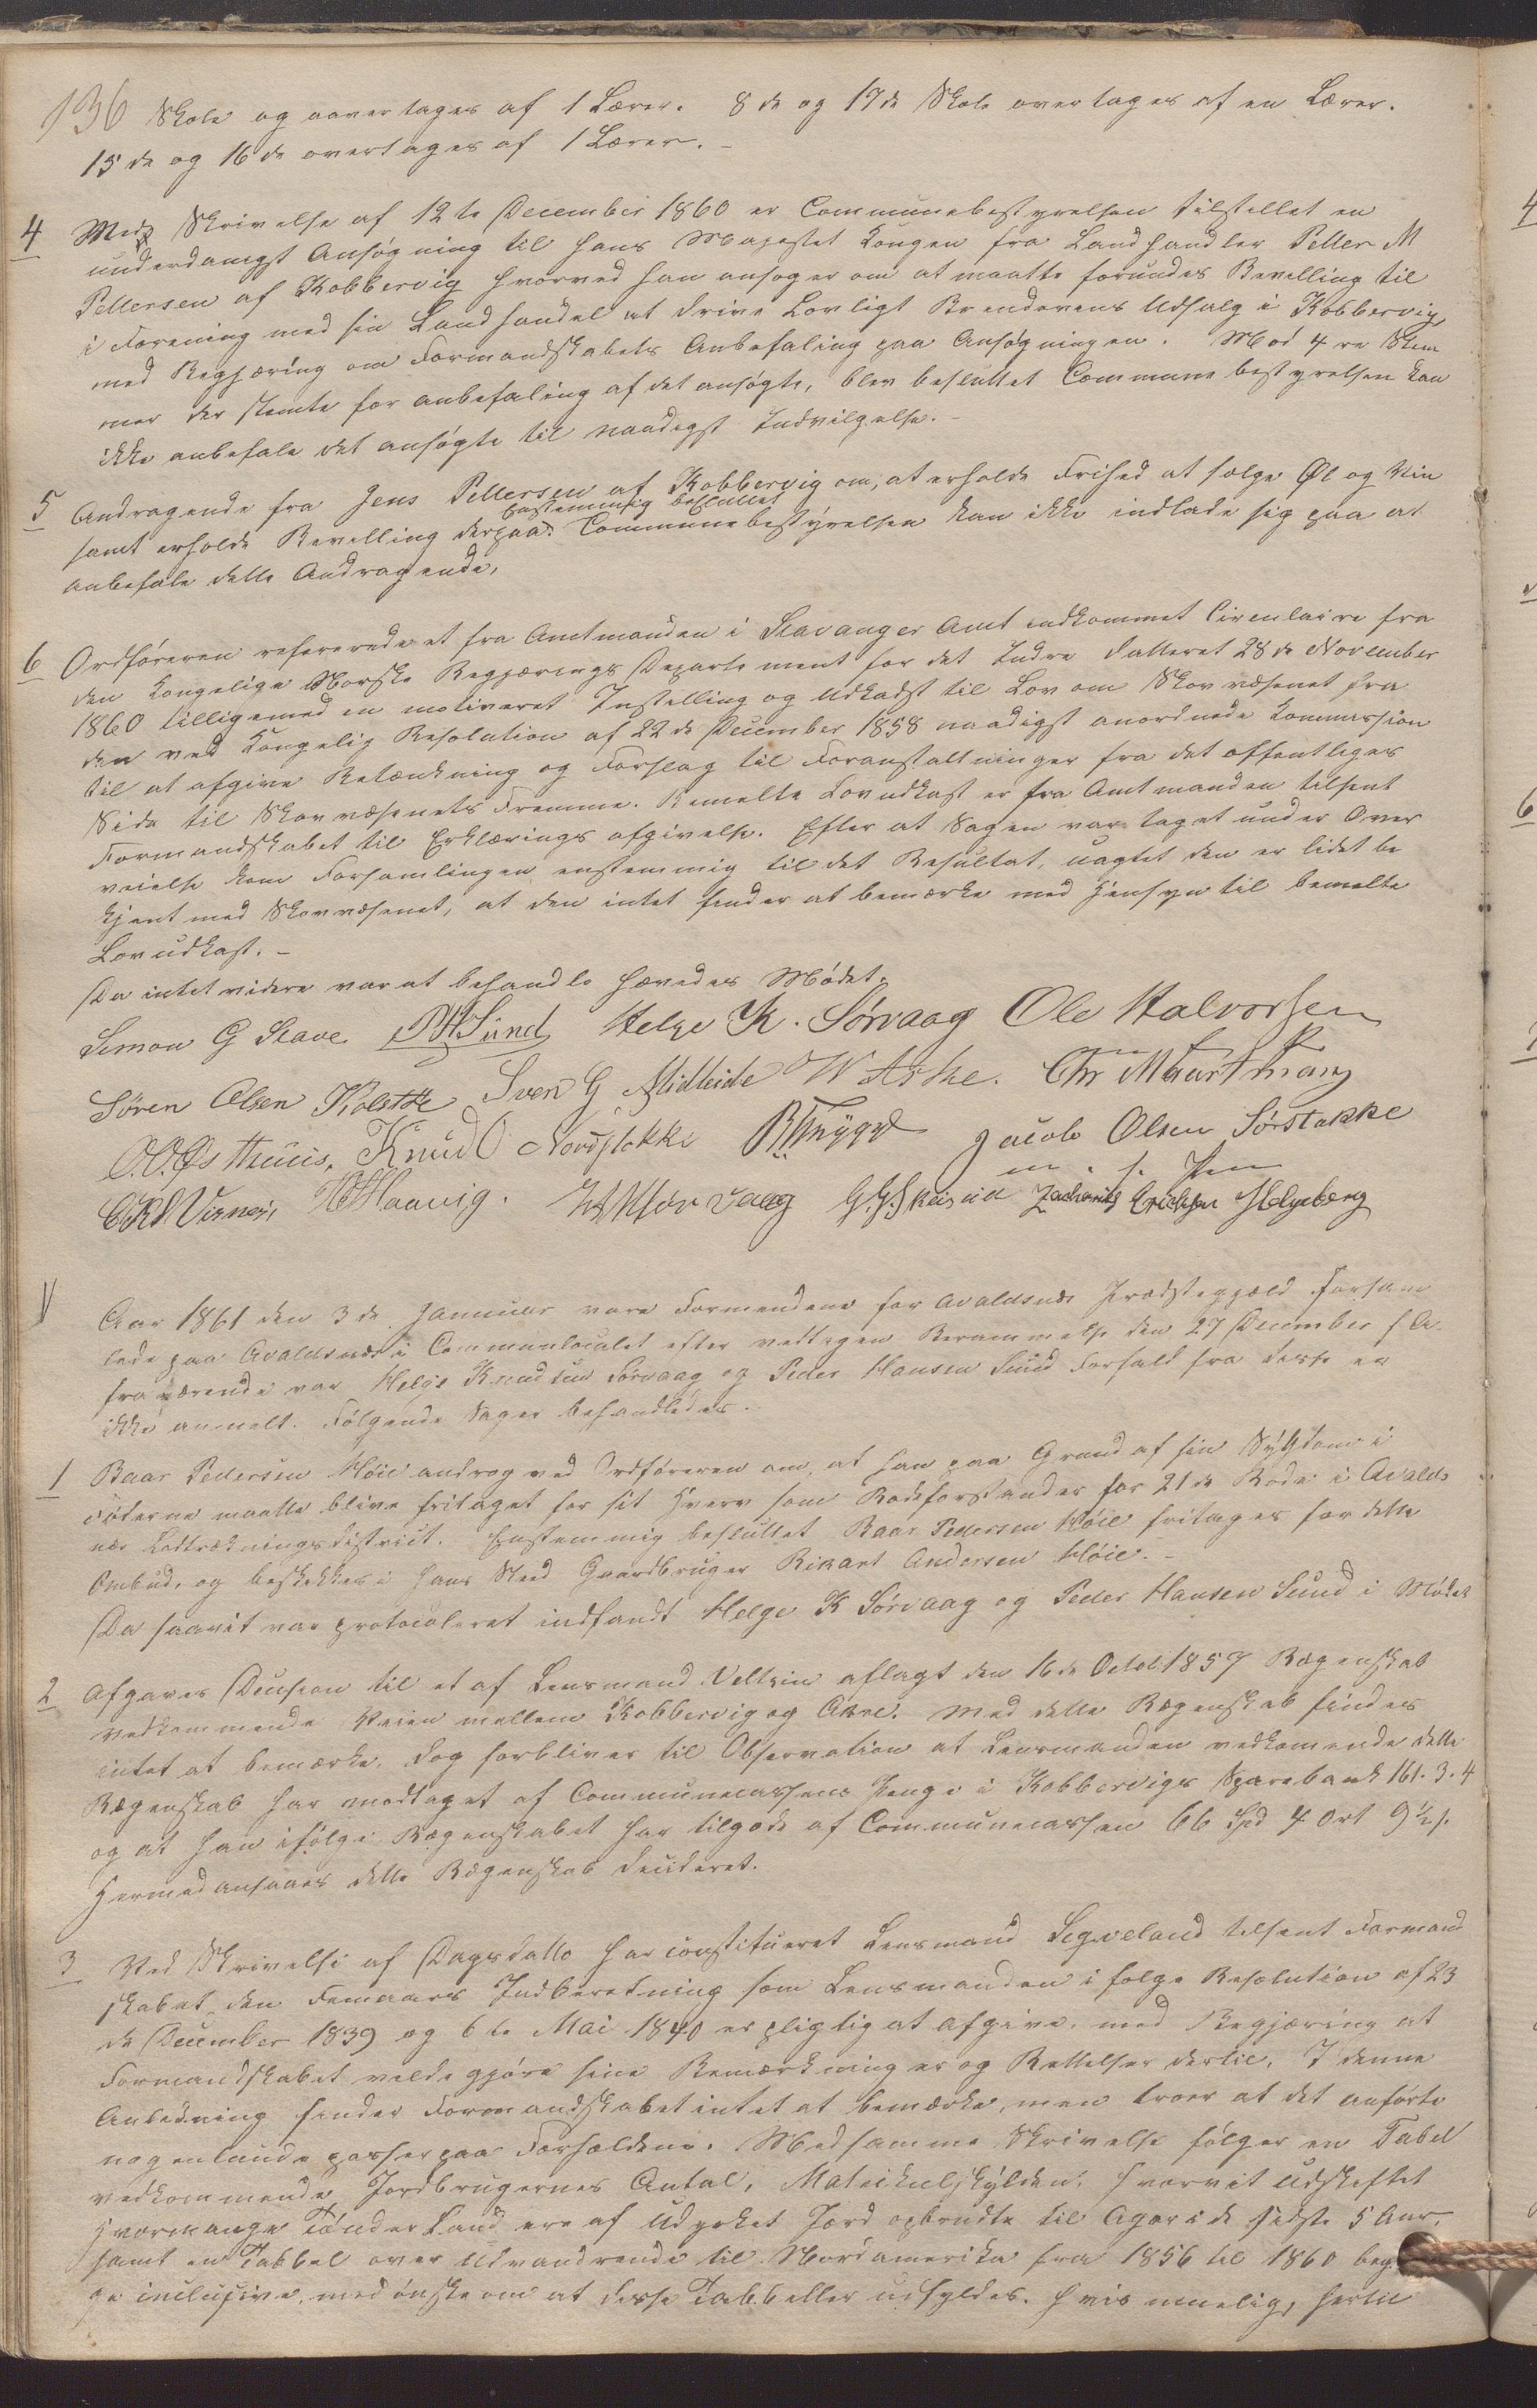 136 Skole og aavertages af 1 Lærer. 8de og 17de Skole overtages af en Lærer.
15de og 16de overtages af 1 Lærer. -
4 Med Skrivelse af 12te December 1860 er Communebestyrelsen tilstellet en
underdanigst Ansøgning til Hans Majestet Kongen fra Landhandler Petter M
Pettersen af Kobbervig hvorved han ansøger om at maatte forundes Bevilling til
i Forening med sin Landhandel at drive Lovligt Brendevins Udsalg i Kobbervig,
med Begjæring om Formandskabets Anbefaling paa Ansøgningen. Mod 4re Stem
mer der stemte for anbefaling af det ansøgte, blev besluttet Communebestyrelsen kan
ikke anbefale det ansøgte til naadigst Indvilgelse. -
5 Andragende fra Jens Pettersen af Kobbervig om, at erholde Frihed at sælge Øl og Vin
Enstemmig besluttet
samt erholde Bevilling derpaa. Communebestyrelsen kan ikke indlade sig paa at
anbefale dette Andragende,
6 Ordføreren refererede et fra Amtmanden i Stavanger Amt indkommet Circulaire fra
den kongelige Norske Regjærings Departement for det Indre datteret 28de November
1860 tilligemed en motiveret Instilling og Udkadst til Lov om Skovvæsenet fra
den ved Kongelig Resolution af 22de December 1858 naadigst anordnede Kommission
til at afgive Betænkning og Forslag til Foranstaltninger fra det offentliges
Side til Skovvæsenets Fremme. Bemelte Lovudkast er fra Amtmanden tilsent
Formandskabet til Erklærings afgivelse. Efter at Sagen var taget under Over
veielse kom Forsamlingen enstemmig til det Resultat, uagtet den er lidet be
kjent med Skovvæsenet, at den intet finder at bemærke med Hensyn til bemelte
Lovudkast. -
Da intet videre var at behandle hævedes Mødet.
Simon G Stave PHSund Helge K. Sørvaag Ole Halvorsen
Søren Olsen Kolstøe Sven G Midleide W Aske. Chr Maartmann
O.O. Østhuus, Knud O Nordstokke Jacob Olsen Sørstokke
m. f. Pen
HHaavig. G.G. Skeisvia Zacharias Erichsen Helgeberg
V Aar 1861 den 3de Januar vare Formendene for Avaldsnæs Præstegjæld forsam
lede paa Avaldsnæs i Communlocalet efter vedtagen Berammelse den 27 December f A.
fraværende var Helge Knudsen Sørvaag og Peder Hansen Sund Forfald fra disse er
ikke anmelt. Følgende Sager behandledes.
1 Baar Pedersen Høie androg ved Ordføreren om, at han paa Grund af sin Sygdom i
Føderne maatte blive fritaget for sit Hverv som Rodeforstander for 21de Rode i Avalds
næs Lodtrækningsdistrict. Enstemmig besluttet Baar Pedersen Høie fritages for dette
Ombud, og beskikkes i hans Sted Gaardbruger Rikart Andersen Høie. -
Da saavit var protocoleret indfandt Helge K Sørvaag og Peder Hansen Sund i Mødet
2 Afgaves Decision til et af Lensmand Veltzin aflagt den 16de Octob 1859 Regenskab
vedkommende Veien mellem Kobbervig og Akre. Med dette Regenskab findes
intet at bemærke, dog forbliver til Observation at Lensmanden vedkomende dette
Regenskab har modtaget af Communecassens Penge i Kobbervigs Sparebank 161. 3. 4
og at han ifølge Regenskabet har tilgode af Communecassen 66 Spd 4 Ort 9½ s.
Hermed ansaaes dette Regenskab decideret.
3 Ved Skrivelse af Dagsdatto har constitueret Lensmand Sigveland tilsent Formand
skabet den Femaars Indberetning som Lensmanden i følge Resolution af 23
de December 1839 og 6te Mai 1840 er pligtig at afgive, med Begjæring at
Formandskabet vilde gjøre sine Bemærkninger og Rettelser dertil, I denne
Anledning finder Formandskabet intet at bemærke, men troer at det anførte
nogenlunde passer paa Forholdene. Med samme Skrivelse følger en Tabel
vedkommende Jordbrugernes Antal, Matrikulskylden, hvorvit Udskiftet
hvormange Tønder Land ere af Udyrket Jord opbrudte til Ager i de sidste 5 Aar,
samt en Tabbel over Udvandrende til Nordamerika fra 1856 til 1860 beg
ge inclusive, med ønske om at disse Tabbeller udfyldes. Hvis muelig, hertil